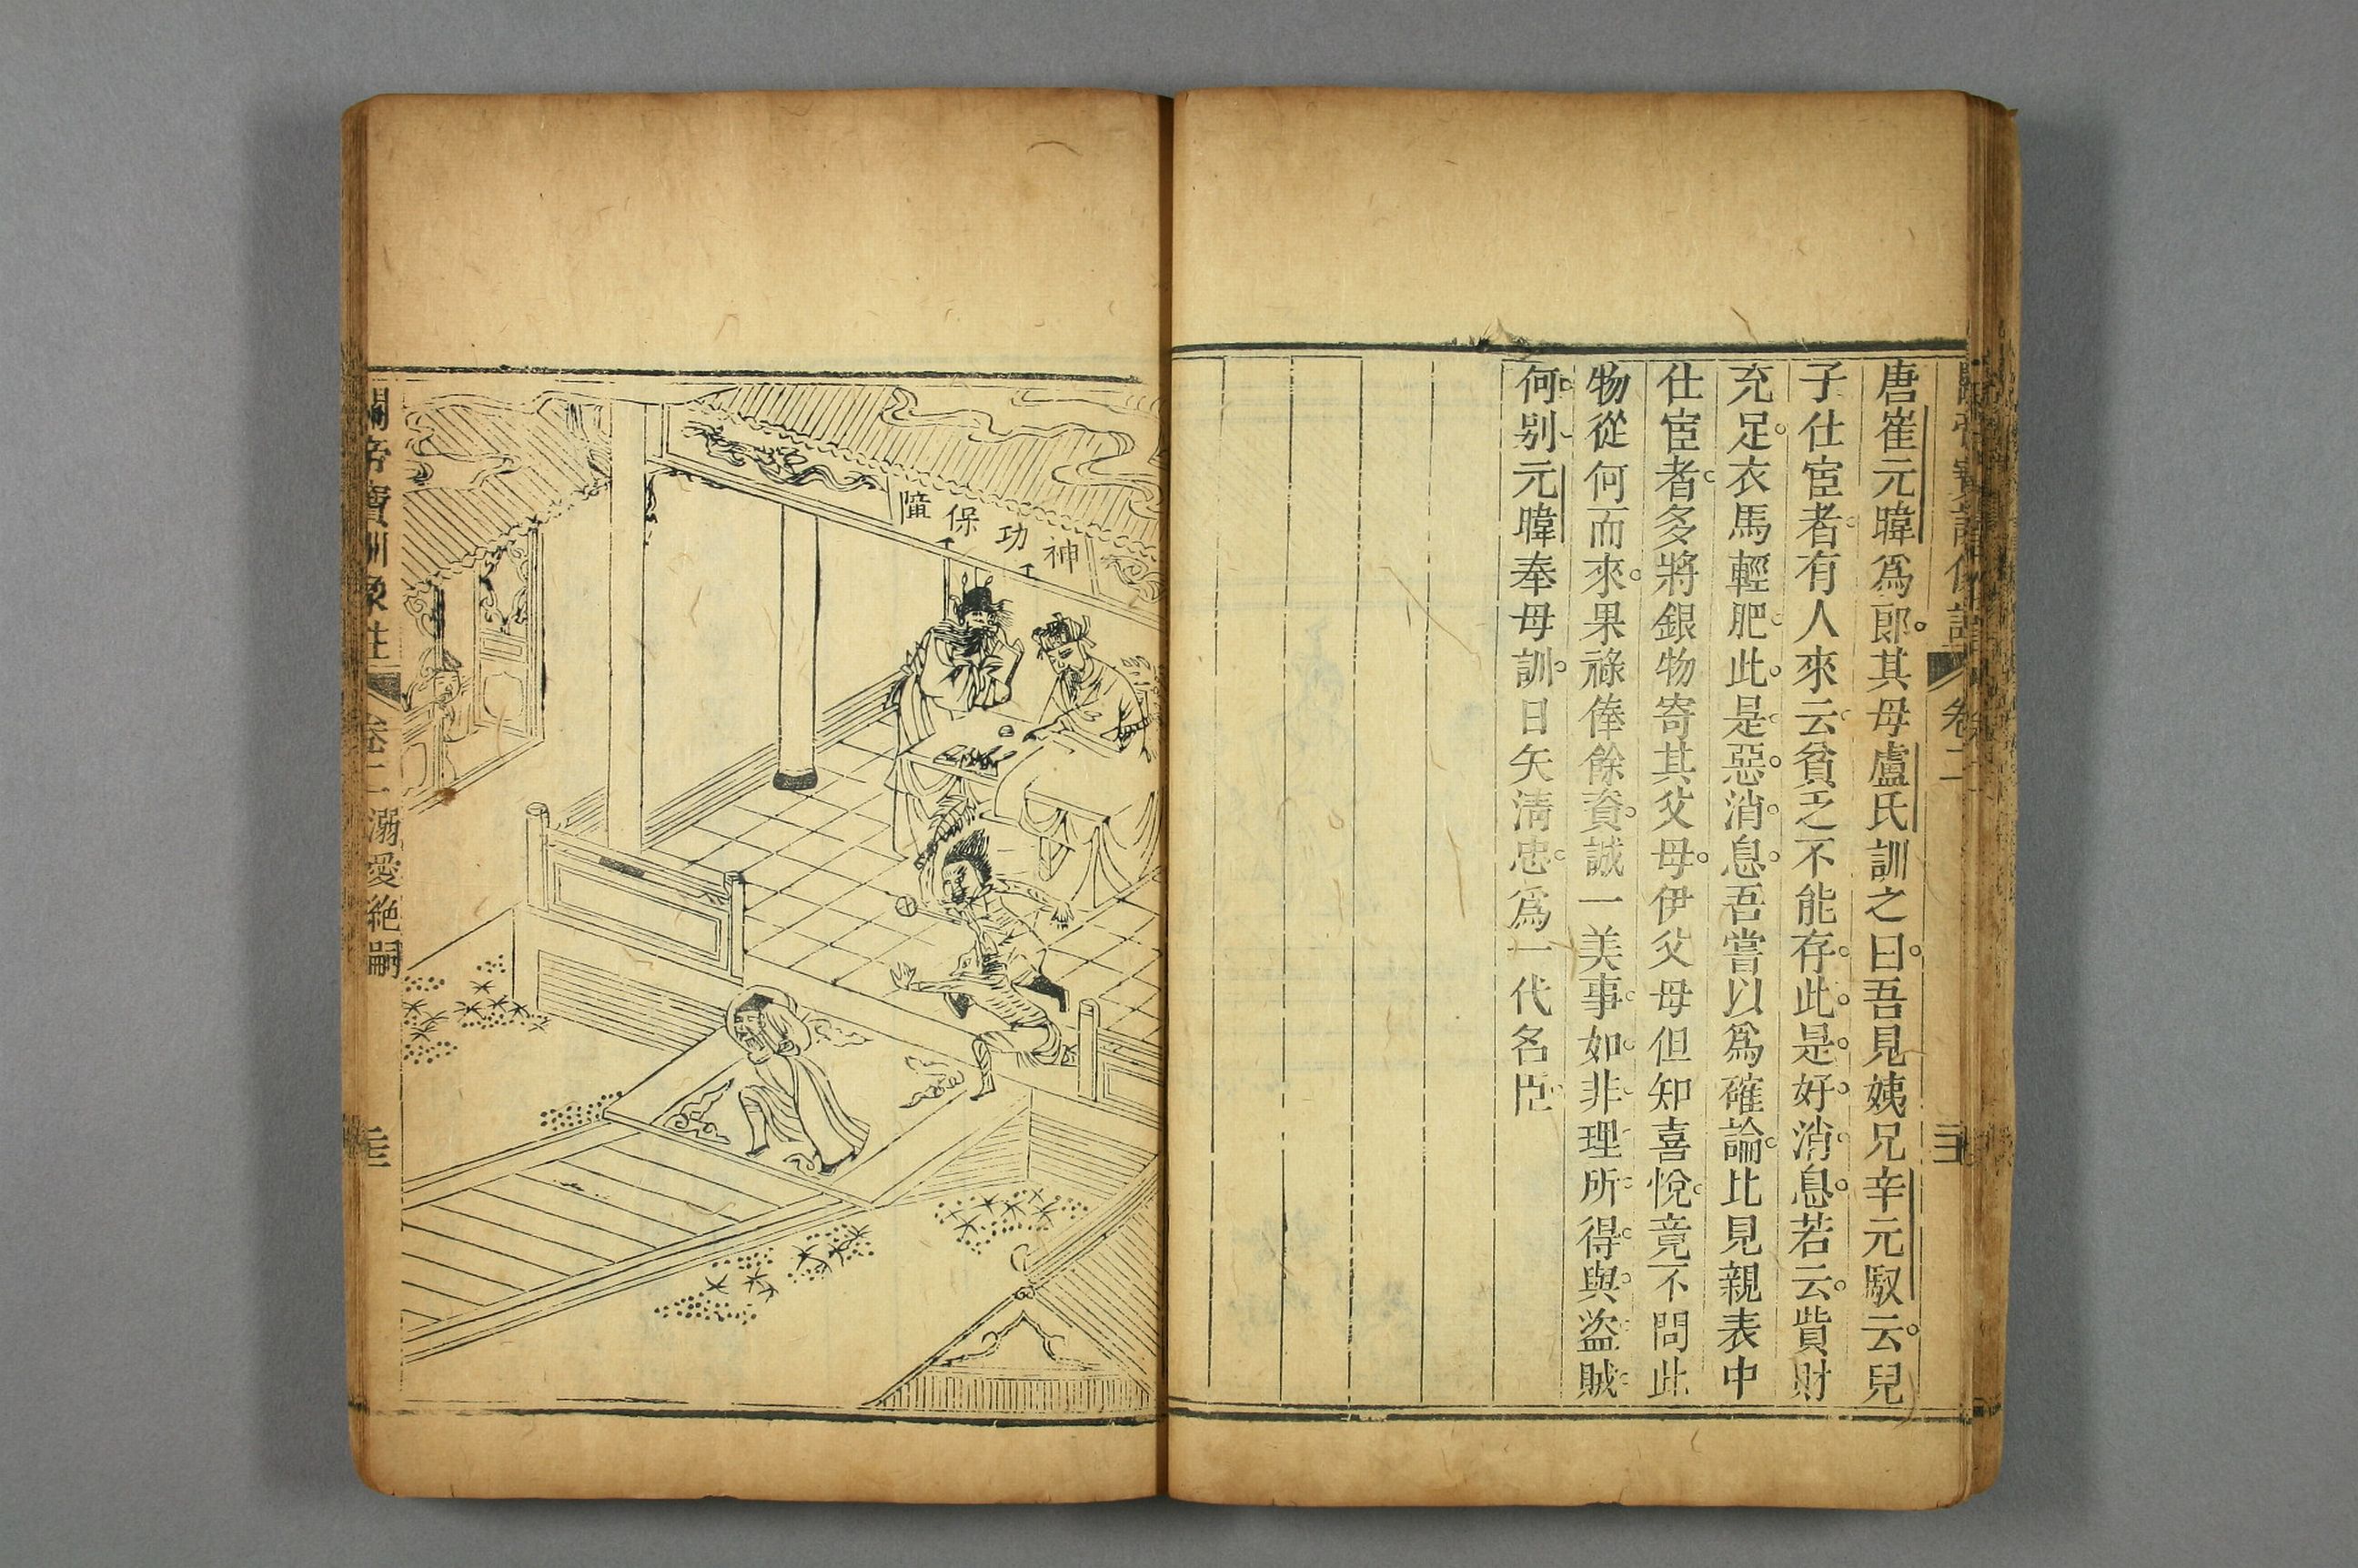 唐崔元暐爲郎其母盧氏訓之曰吾見姨兄辛元馭云兒
子仕宦者有人來云貧乏不能存此是好消息若云貲財
充足衣馬輕肥此是惡消息吾嘗以爲確論比見親表中
仕宦者多將銀物寄其父母伊父母但知喜悅竟不問此
物從何而來果祿俸餘資誠一美事如非理所得與盜賊
何别元暐奉母訓日矢清忠爲一代名臣
神功保障
關帝寶訓象註 卷二 溺愛絶嗣